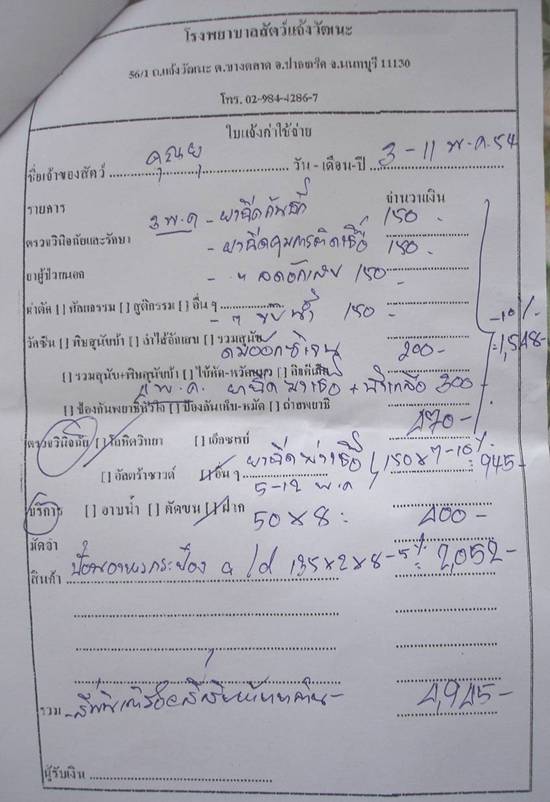 โรงพยาบาลสัตว์แจ้งวัฒนะ
56/1 ถ.แจ้งวัฒนะ ต.บางตลาด อ.ปากเกร็ด จ.นนทบุรี 11130
โทร. 02-984-4286-7
ใบแจ้งค่าใช้จ่าย
ชื่อเจ้าของสัตว์ คุณ วัน - เดือน - ปี 3 - 11 พ.ค. 54
รายการ จำนวนเงิน
3 พ.ค - ยาฉีดกันช้ำ 150 -
ตรวจวินิจฉัยและรักษา - ยาฉีดคุมการติดเชื้อ 150 -
ยาผู้ป่วยนอก - " ลดอักเสบ 150 -
ผ่าตัด [ ] ศัลยกรรม [ ] สูติกรรม [ ] อื่น ๆ - " ขับน้ำ 150 - -10%
วัคซีน [ ] พิษสุนัขบ้า [ ] ลำไส้อักเสบ [ ] รวมสุนัข ดมออกซิเจน 200 - = 1,548 -
[ ] รวมสุนัข+พิษสุนัขบ้า [ ] ไข้หัด-หวัดแมว [ ] ลิวคีเมีย
พ.ค. ยาฉีดฆ่าเชื้อ + น้ำเกลือ 300 -
[ ] ป้องกันพยาธิหัวใจ [ ] ป้องกันเห็บ-หมัด [ ] ถ่ายพยาธิ
470 -
ตรวจวินิจฉัย [ ] โลหิตวิทยา [ ] เอ็กซเรย์
[ ] อัลตร้าซาวด์ [ ] อื่น ๆ ยาฉีดฆ่าเชื้อ 150 x 7 - 10% = 945 -
5 - 12 พ.ค
บริการ [ ] อาบน้ำ [ ] ตัดขน [ ] ฝาก 50 x 8 = 400 -
มัดจำ
สินค้า ป้อนอาหารกระป๋อง a/d 135 x 2 x 8 - 5% = 2,052 -
รวม 4,945 -
ผู้รับเงิน